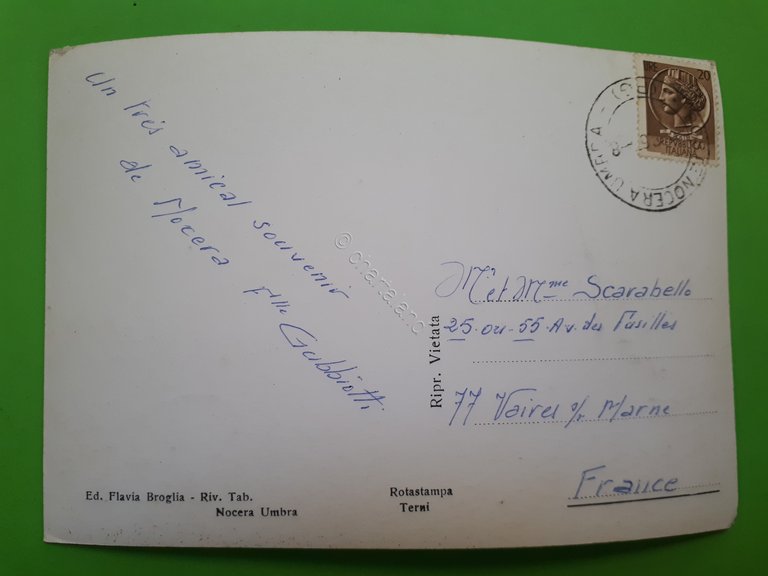 Un très amical souvenir
de Nocera
Flle Gubbiotti
LIRE 20
REPUBBLICA
ITALIANA
NOCERA UMBRA (PG)
Mr et Mme Scarabello
25 ou 55 Av. des Fusillés
77 Vaires s/ Marne
France
Ripr. Vietata
Ed. Flavia Broglia - Riv. Tab.
Nocera Umbra
Rotastampa
Terni